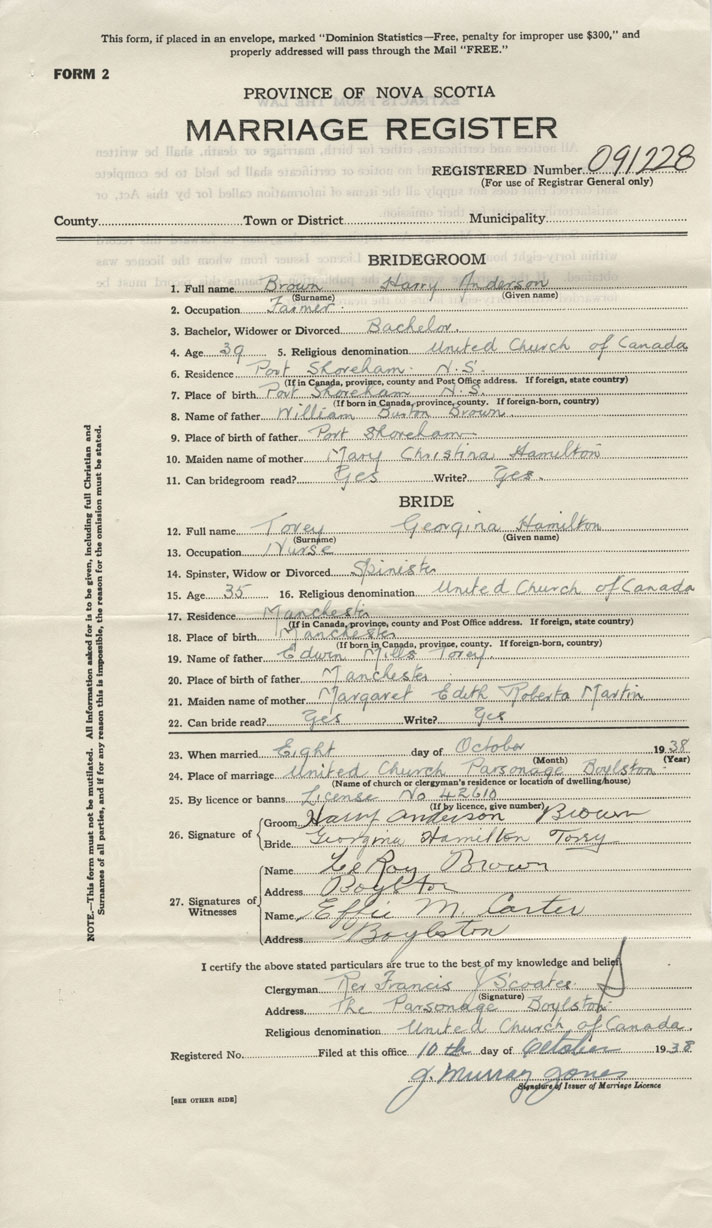 This form, if placed in an envelope, marked "Dominion Statistics—Free, penalty for improper use $300," and
properly addressed will pass through the Mail "FREE."
FORM 2
PROVINCE OF NOVA SCOTIA
MARRIAGE REGISTER
REGISTERED Number 091228
(For use of Registrar General only)
County Town or District Municipality
BRIDEGROOM
1. Full name Brown Harry Anderson
(Surname) (Given name)
2. Occupation Farmer
3. Bachelor, Widower or Divorced Bachelor
4. Age 39 5. Religious denomination United Church of Canada
6. Residence Port Shoreham N.S.
(If in Canada, province, county and Post Office address. If foreign, state country)
7. Place of birth Port Shoreham N.S.
(If born in Canada, province, county. If foreign-born, country)
8. Name of father William Buston Brown
9. Place of birth of father Port Shoreham
10. Maiden name of mother Mary Christina Hamilton
11. Can bridegroom read? Yes Write? Yes.
BRIDE
12. Full name Torey Georgina Hamilton
(Surname) (Given name)
13. Occupation Nurse
14. Spinster, Widow or Divorced Spinister
15. Age 35 16. Religious denomination United Church of Canada
17. Residence Manchester
(If in Canada, province, county and Post Office address. If foreign, state country)
18. Place of birth Manchester
(If born in Canada, province, county. If foreign-born, country)
19. Name of father Edwin Mills Torey
20. Place of birth of father Manchester
21. Maiden name of mother Margaret Edith Roberta Martin
22. Can bride read? Yes Write? Yes
23. When married Eight day of October 1938
(Month) (Year)
24. Place of marriage United Church Parsonage Boylston
(Name of church or clergyman's residence or location of dwelling/house)
25. By licence or banns License No 42610
(If by licence, give number)
26. Signature of Groom Harry Anderson Brown
Bride Georgina Hamilton Torey
27. Signatures of Witnesses
Name LeRoy Brown
Address Boylston
Name Effie M. Carter
Address Boylston
I certify the above stated particulars are true to the best of my knowledge and belief
Clergyman Rev Francis J Scoates
(Signature)
Address The Parsonage Boylston
Religious denomination United Church of Canada.
Registered No. Filed at this office 10th day of October 1938
J. Murray Jones
Signature of Issuer of Marriage Licence
[SEE OTHER SIDE]
NOTE.—This form must not be mutilated. All information asked for is to be given, including full Christian and
Surnames of all parties, and if for any reason this is impossible, the reason for the omission must be stated.